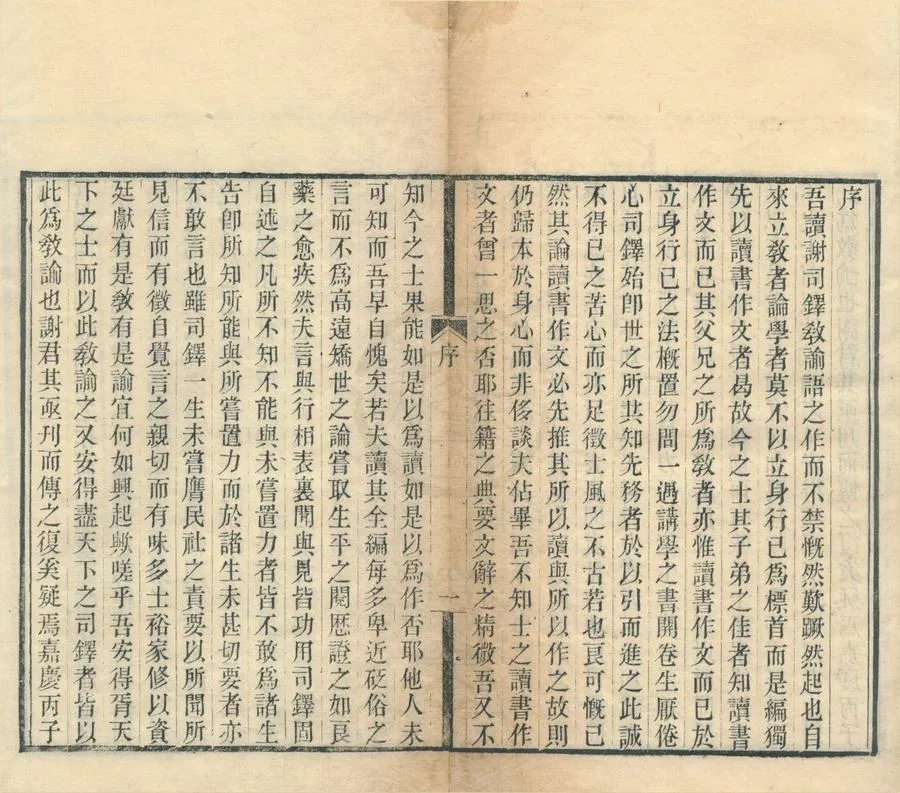 序
吾讀謝司鐸敎諭語之作而不禁慨然歎蹶然起也自
來立敎者論學者莫不以立身行己爲標首而是編獨
先以讀書作文者曷故今之士其子弟之佳者知讀書
作文而已其父兄之所爲敎者亦惟讀書作文而已於
立身行己之法槪置勿問一遇講學之書開卷生厭倦
心司鐸始卽世之所其知先務者於以引而進之此誠
不得已之苦心而亦足徵士風之不古若也良可慨已
然其論讀書作文必先推其所以讀與所以作之故則
仍歸本於身心而非侈談夫佔畢吾不知士之讀書作
文者曾一思之否耶往籍之典要文辭之精微吾又不
序
一
知今之士果能如是以爲讀如是以爲作否耶他人未
可知而吾早自愧矣若夫讀其全編每多卑近砭俗之
言而不爲高遠矯世之論嘗取生平之閱歷證之如良
藥之愈疾然夫言與行相表裏聞與見皆功用司鐸固
自述之凡所不知不能與未嘗置力者皆不敢爲諸生
告卽所知所能與所嘗置力而於諸生未甚切要者亦
不敢言也雖司鐸一生未嘗膺民社之責要以所聞所
見信而有徵自覺言之親切而有味多士裕家修以資
廷獻有是敎有是諭宜何如興起歟嗟乎吾安得胥天
下之士而以此敎諭之又安得盡天下之司鐸者皆以
此爲敎諭也謝君其亟刊而傳之復奚疑焉嘉慶丙子